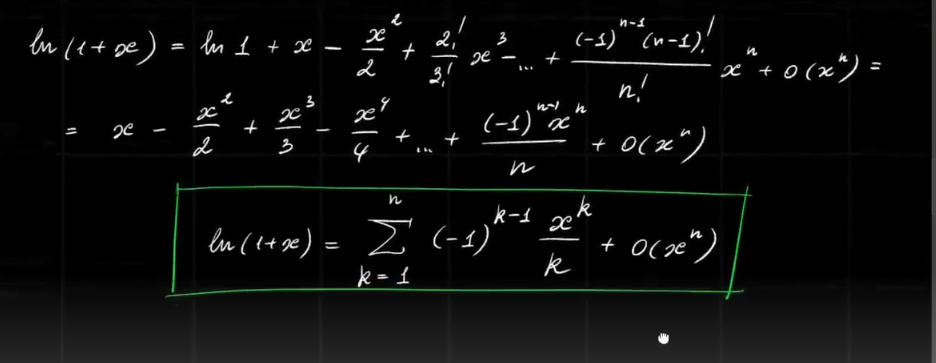 ln(1+x) = ln 1 + x - x²/2 + 2!/3! x³ - ... + (-1)ⁿ⁻¹(n-1)!/n! xⁿ + o(xⁿ) =
= x - x²/2 + x³/3 - x⁴/4 + ... + (-1)ⁿ⁻¹xⁿ/n + o(xⁿ)
ln(1+x) = ∑ₖ₌₁ⁿ (-1)ᵏ⁻¹ xᵏ/k + o(xⁿ)